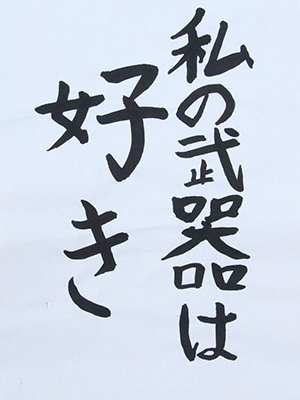 私の武器は
好き